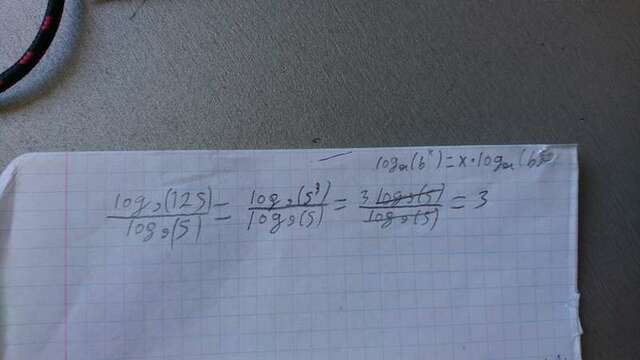 logₐ(bˣ) = x·logₐ(b)
log₉(125)/log₉(5) = log₉(5³)/log₉(5) = 3 log₉(5)/log₉(5) = 3